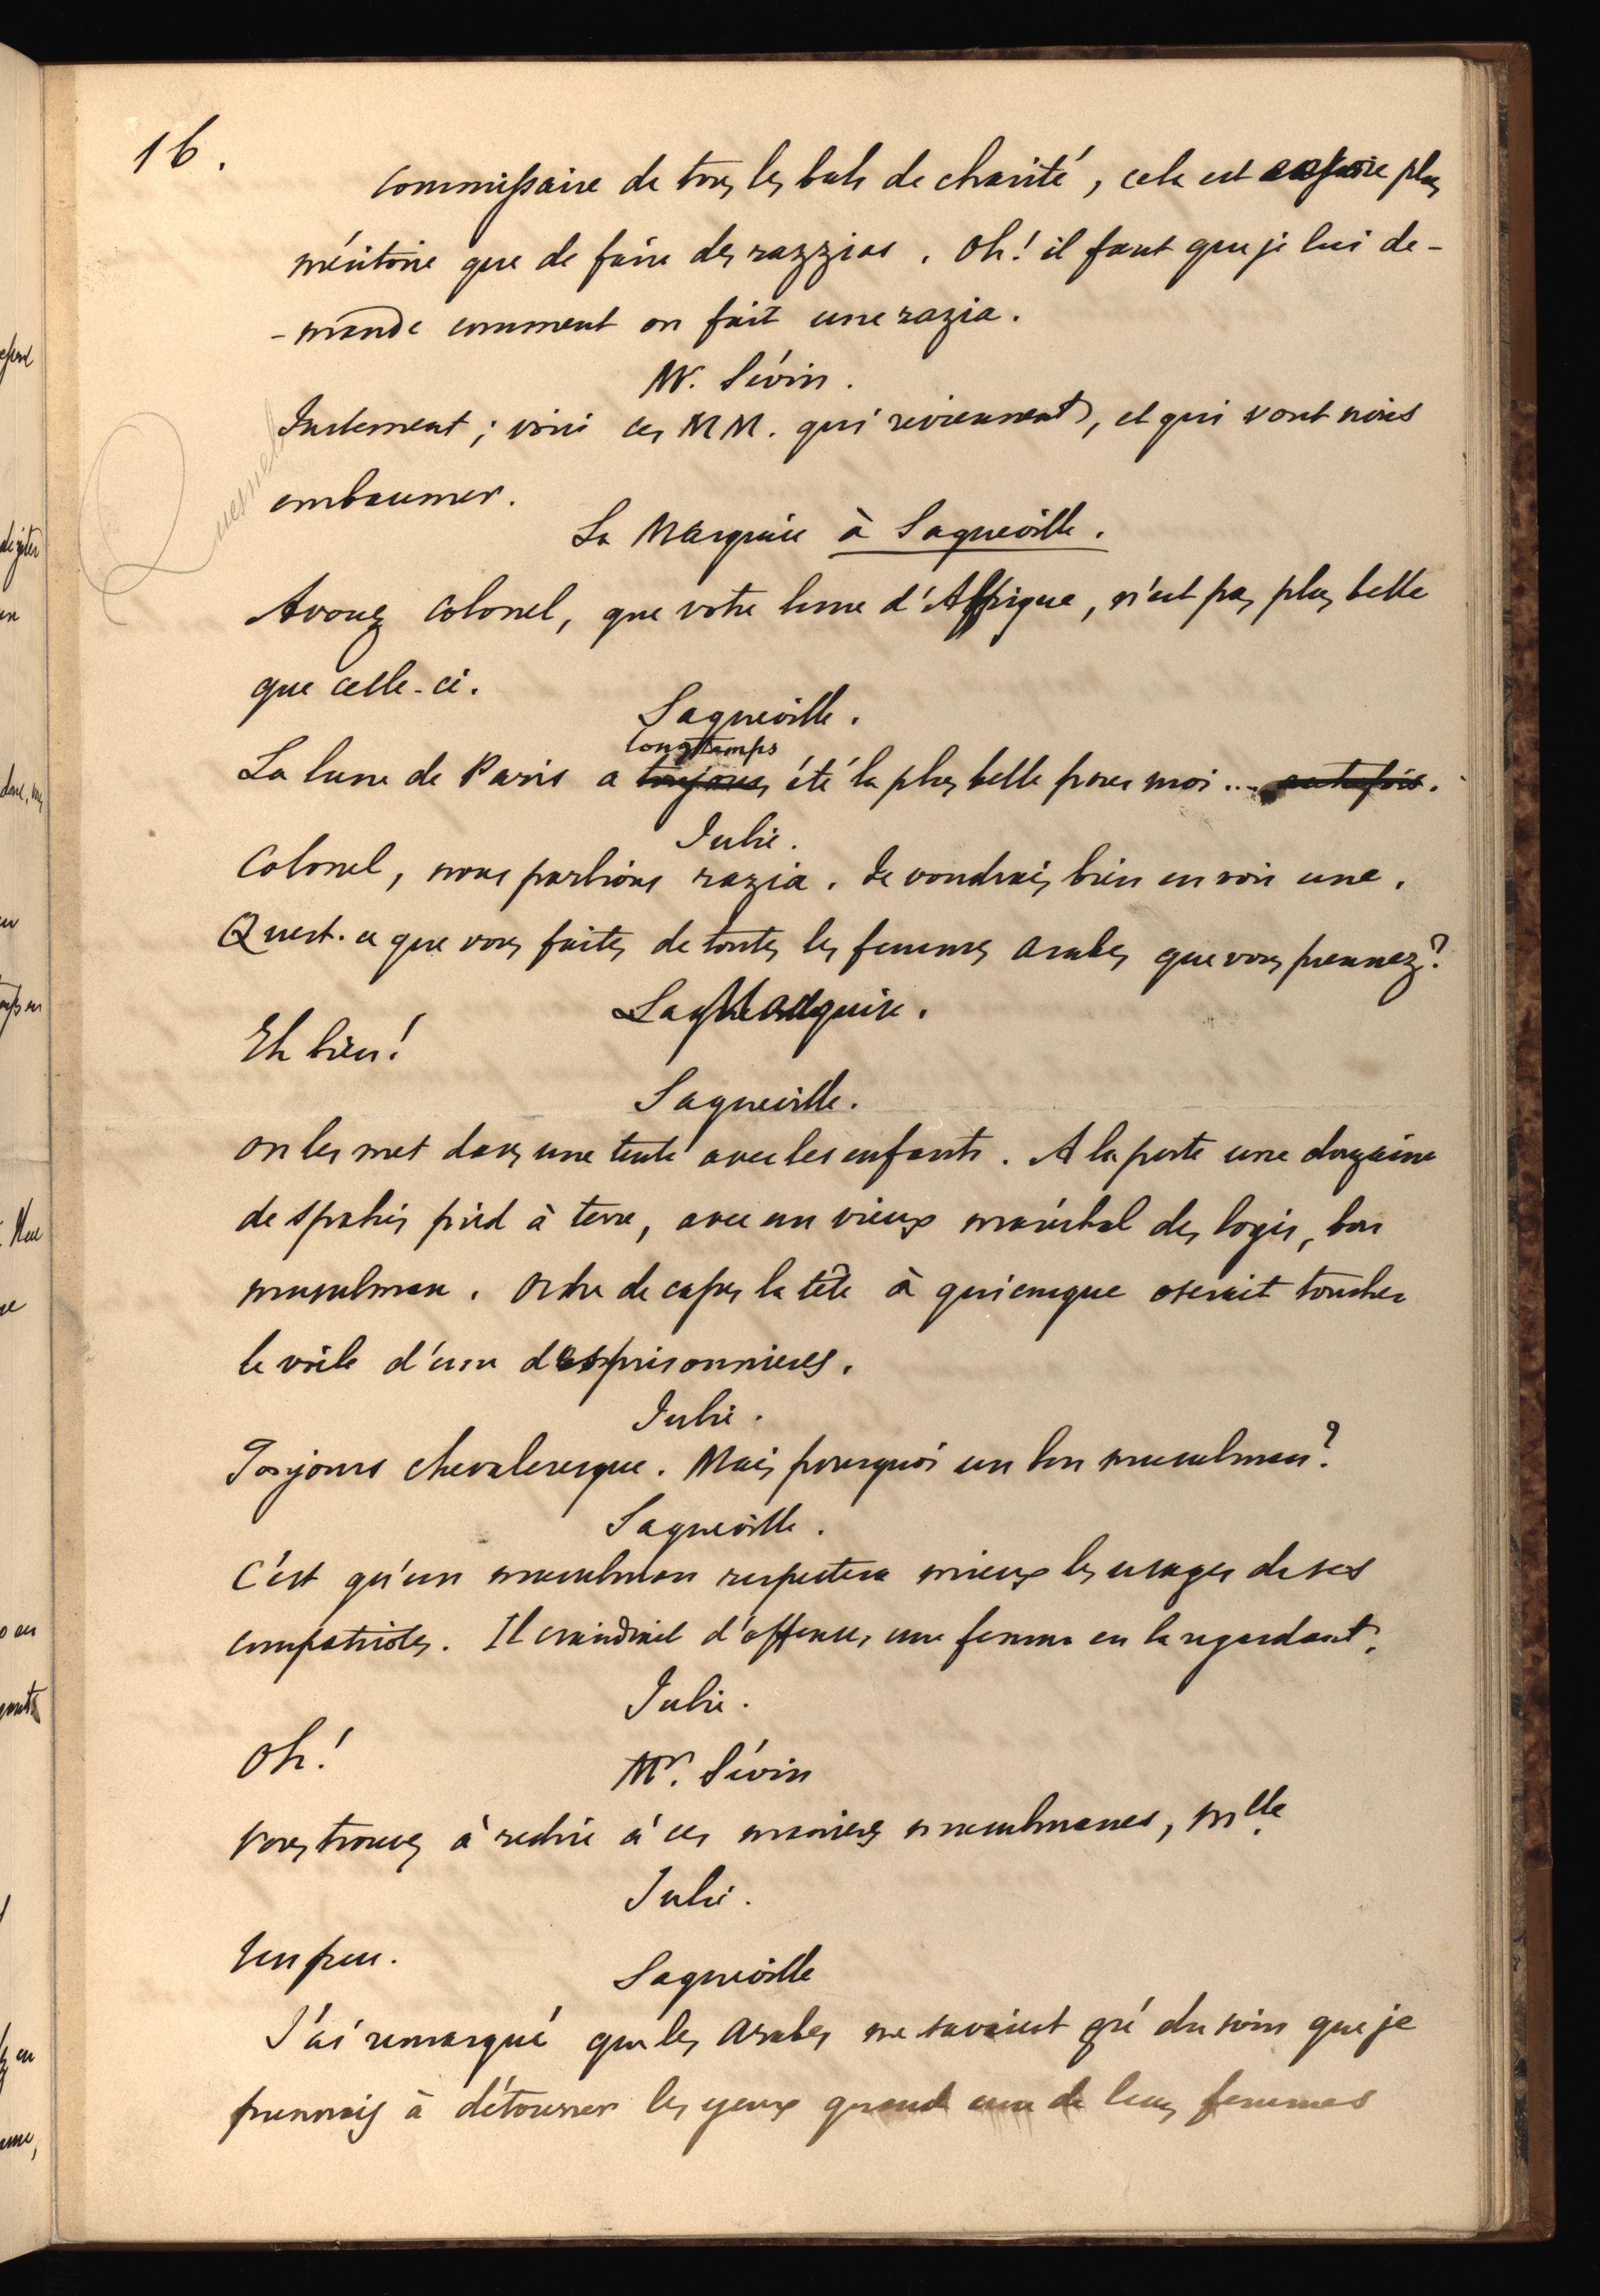 16.
commissaire de tous les bals de charité, cela est encore plus
méritoire que de faire des razzias. Oh! il faut que je lui de-
-mande comment on fait une razia.
Mr. Sévin.
Justement; voici ces MM. qui reviennent, et qui vont nous
embaumer.
Quesnel
La Marquise à Saqueville.
Avouez colonel, que votre lune d'Affrique, n'est pas plus belle
que celle-ci.
Saqueville.
longtemps
La lune de Paris a toujours été la plus belle pour moi... autrefois.
Julie.
Colonel, nous parlions razia. Je voudrais bien en voir une.
Quest-ce que vous faites de toutes les femmes arabes que vous prennez?
La Marquise.
Eh bien!
Saqueville.
On les met dans une tente avec les enfants. A la porte une douzaine
de spahis pied à terre, avec un vieux maréchal des logis, bon
musulman. Ordre de couper la tête à quiconque oserait toucher
le voile d'une des prisonnières.
Julie.
Toujours chevaleresque. Mais pourquoi un bon musulman?
Saqueville.
C'est qu'un musulman respectera mieux les usages de ses
compatriotes. Il craindrait d'offenser une femme en la regardant.
Julie.
Oh!
Mr. Sévin
Vous trouvez à redire à ces manières musulmanes, Mlle.
Julie.
Un peu.
Saqueville
J'ai remarqué que les Arabes me savaient gré du soin que je
prennais à détourner les yeux quand une de leurs femmes